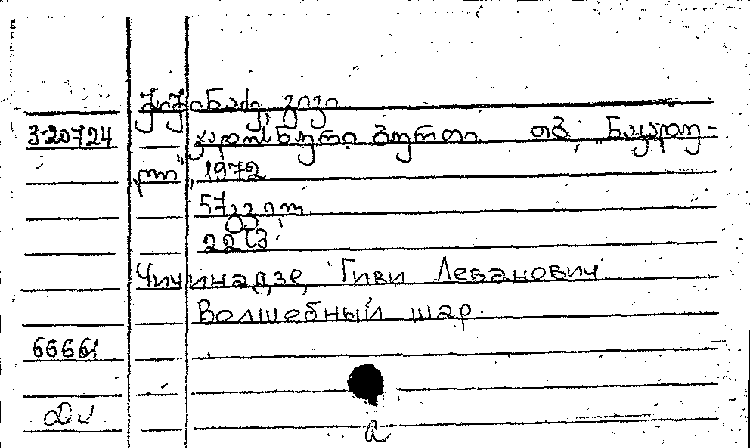 ჭიჭინაძე, გივი
3-20724 ჯადოსნური ბურთი. თბ., ნაკადუ-
ლი", 1972
57 გვ.
22 კ.
Чичинадзе, Гиви Леванович
Волшебный шар.
6666